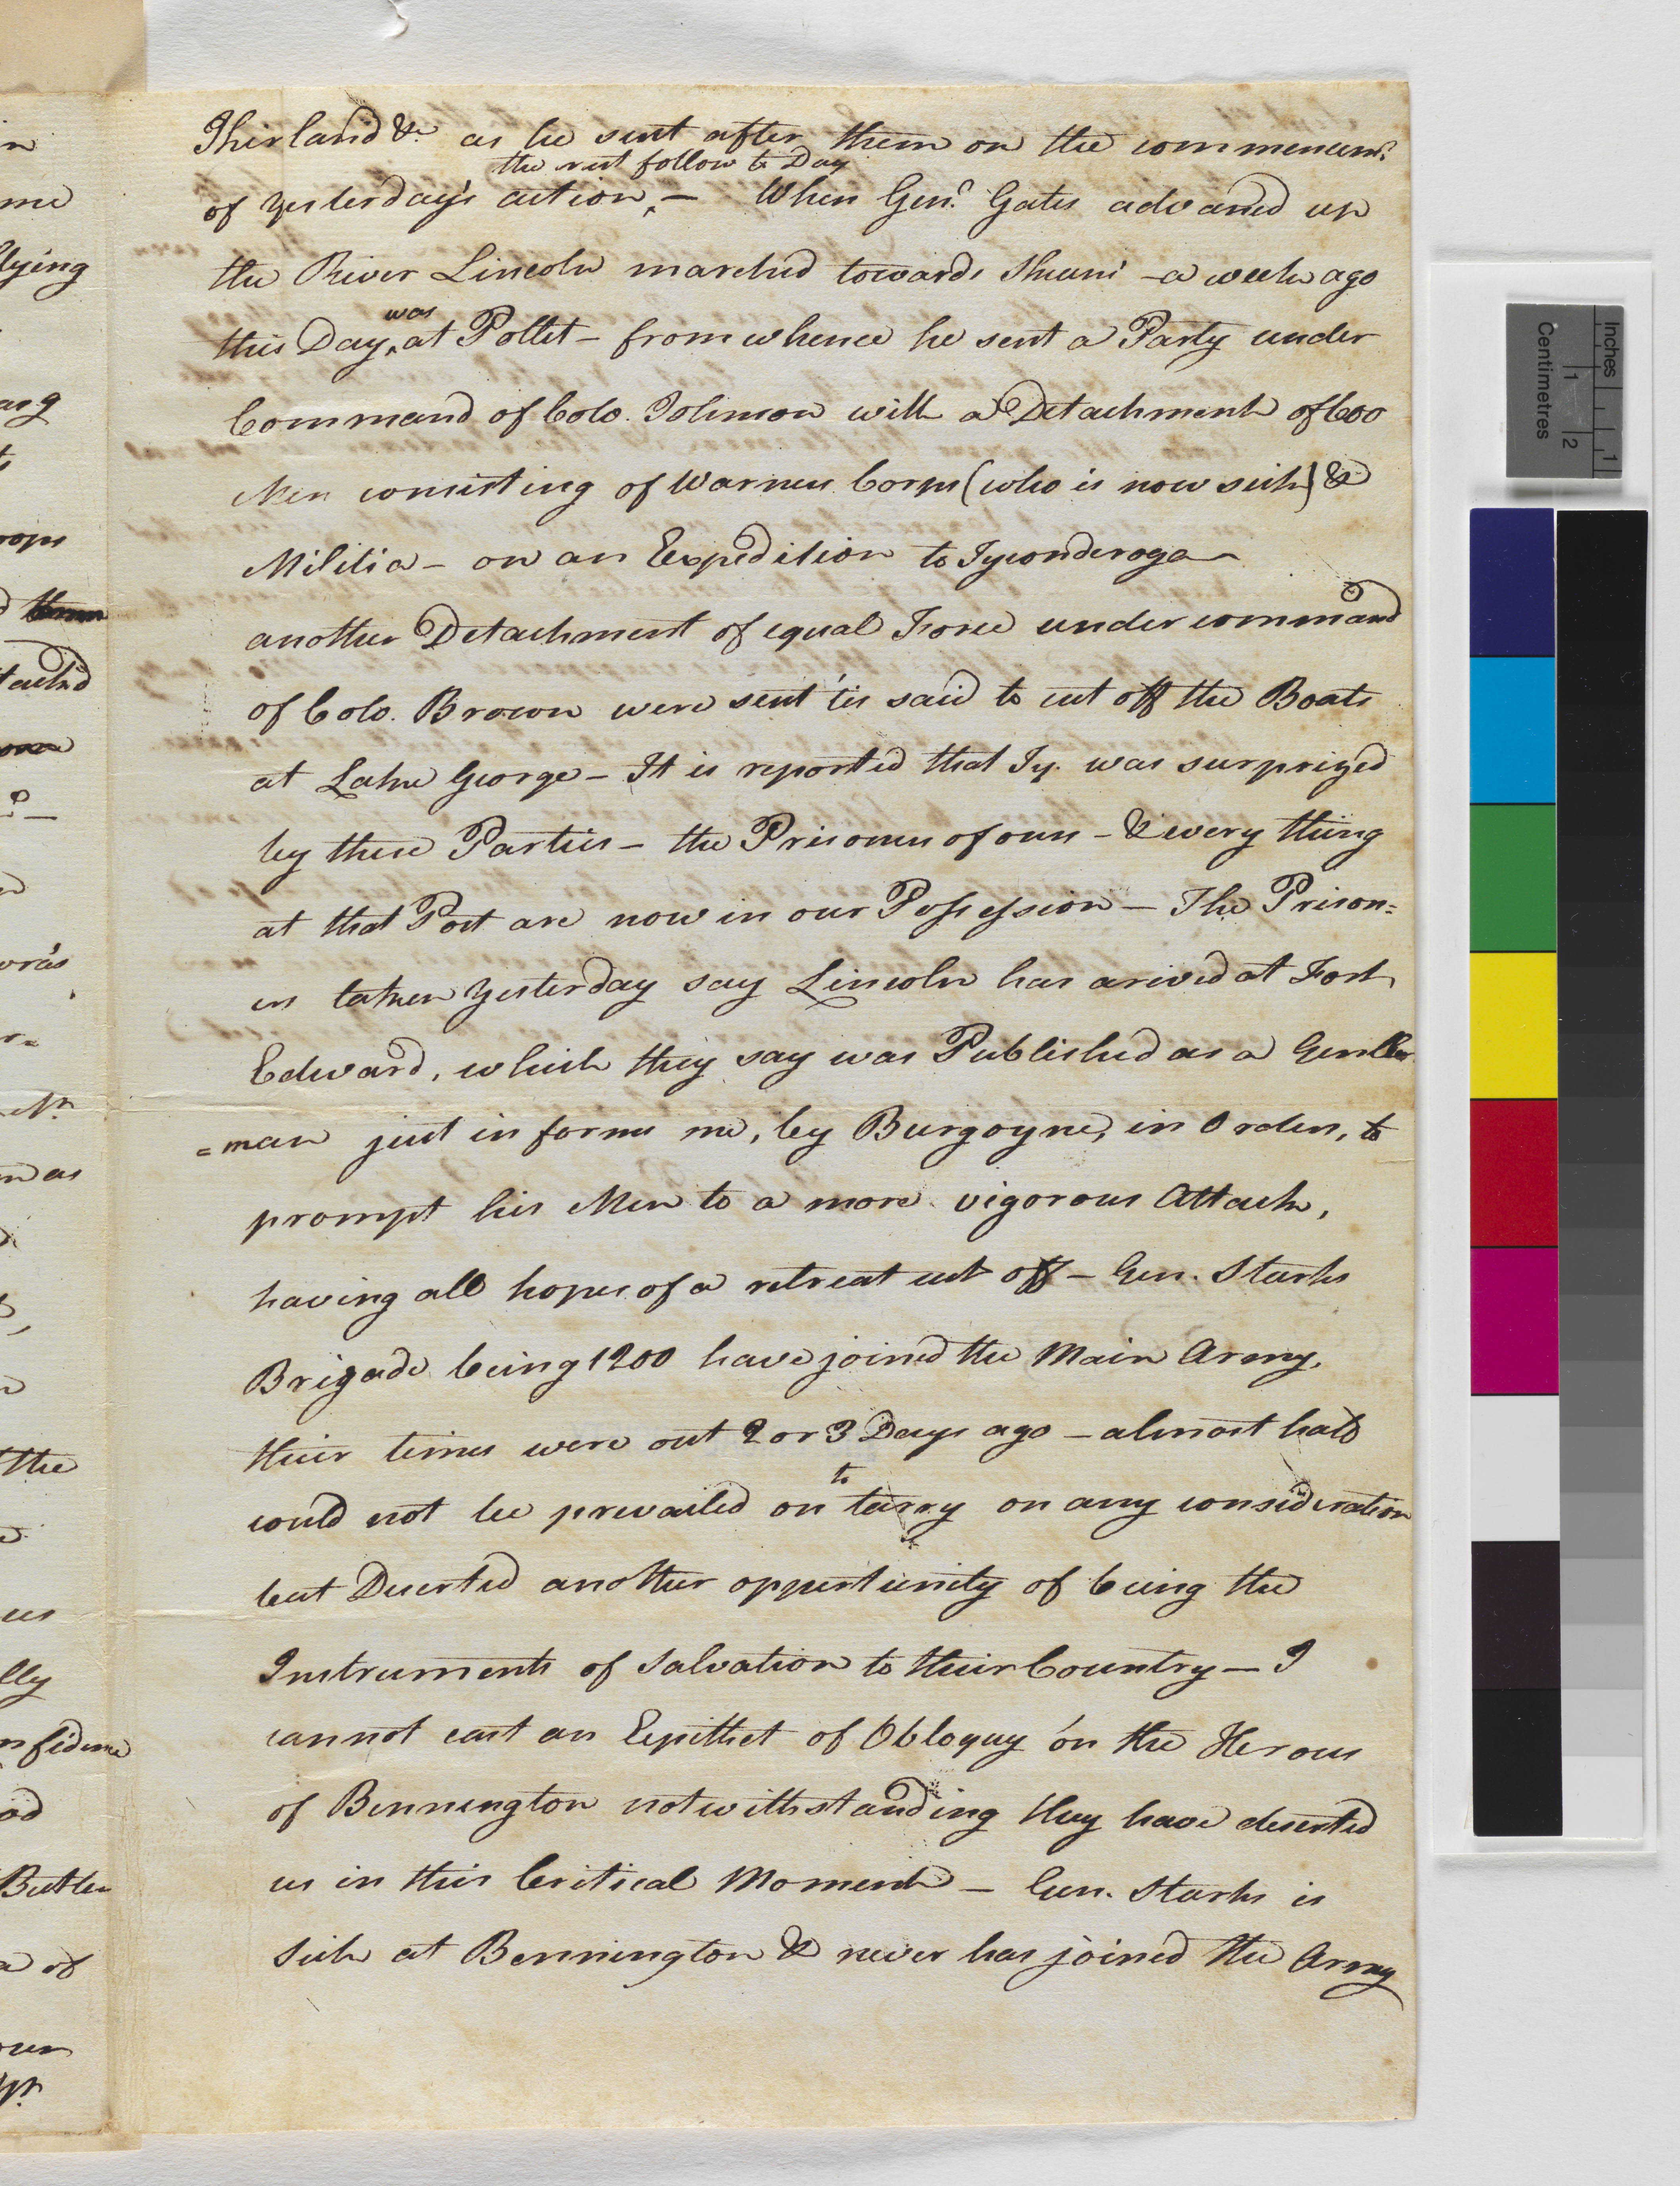 Thirland &c as he sent after them on the commencemt
the rest follow to Day
of yesterday's action, — When Genl Gates advanced up
the River Lincoln marched towards Skeens — a week ago
was
this Day at Pollet — from whence he sent a Party under
Command of Colo. Johnson with a Detachment of 600
Men consisting of Warners Corps (who is now sick) &
Militia — on an Expedition to Tyconderoga —
another Detachment of equal Force under command
of Colo. Brown were sent 'tis said to cut off the Boats
at Lake George — It is reported that Ty. was surprized
by these Parties — the Prisoners of ours — & every thing
at that Post are now in our Possession — The Prison=
ers taken yesterday say Lincoln has arived at Fort
Edward, which they say was Published as a Gentle
=man just informs me, by Burgoyne, in Orders, to
prompt his Men to a more vigorous Attack,
having all hopes of a retreat cut off — Gen. Starks
Brigade being 1200 have joined the Main Army,
their times were out 2 or 3 Days ago — almost half
to
could not be prevailed on tarry on any consideration
but Deserted another oppertunity of being the
Instruments of Salvation to their Country — I
cannot cast an Epithet of Obloquy on the Heroes
of Bennington notwithstanding they have deserted
us in this Critical Moment — Gen. Starks is
Sick at Bennington & never has joined the Army
in
me
lying
ops
the
us
lly
nfidence
od
Butler
of